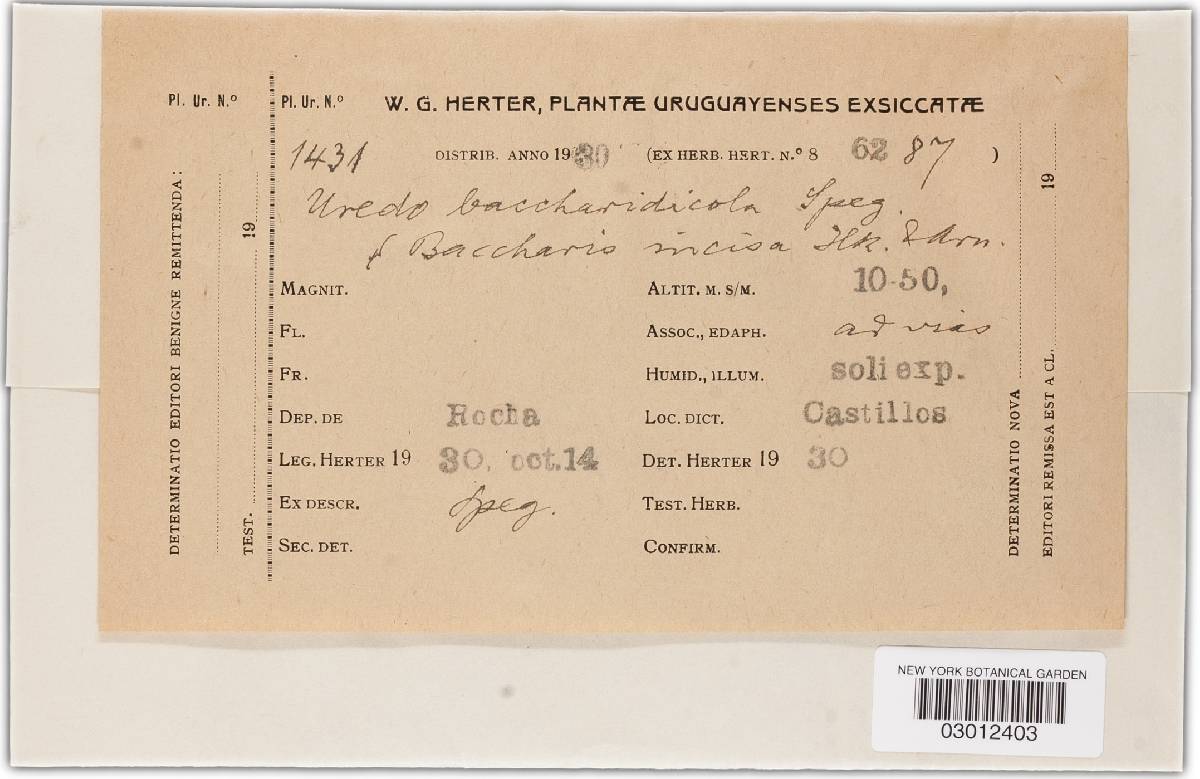 Pl. Ur. N.º
Pl. Ur. N.º
W. G. HERTER, PLANTÆ URUGUAYENSES EXSICCATÆ
1431
DISTRIB. ANNO 1930 (EX HERB. HERT. N.º 8 62 87 )
Uredo baccharidicola Speg.
Baccharis incisa Hk. & Arn.
MAGNIT.
ALTIT. M. S/M. 10-50,
FL.
ASSOC., EDAPH. ad vias
FR.
HUMID., ILLUM. soli exp.
DEP. DE Rocha
LOC. DICT. Castillos
LEG. HERTER 19 30, oct. 14
DET. HERTER 19 30
EX DESCR. Speg.
TEST. HERB.
SEC. DET.
CONFIRM.
DETERMINATIO EDITORI BENIGNE REMITTENDA:
TEST. 19
DETERMINATIO NOVA
EDITORI REMISSA EST A CL. 19
NEW YORK BOTANICAL GARDEN
03012403